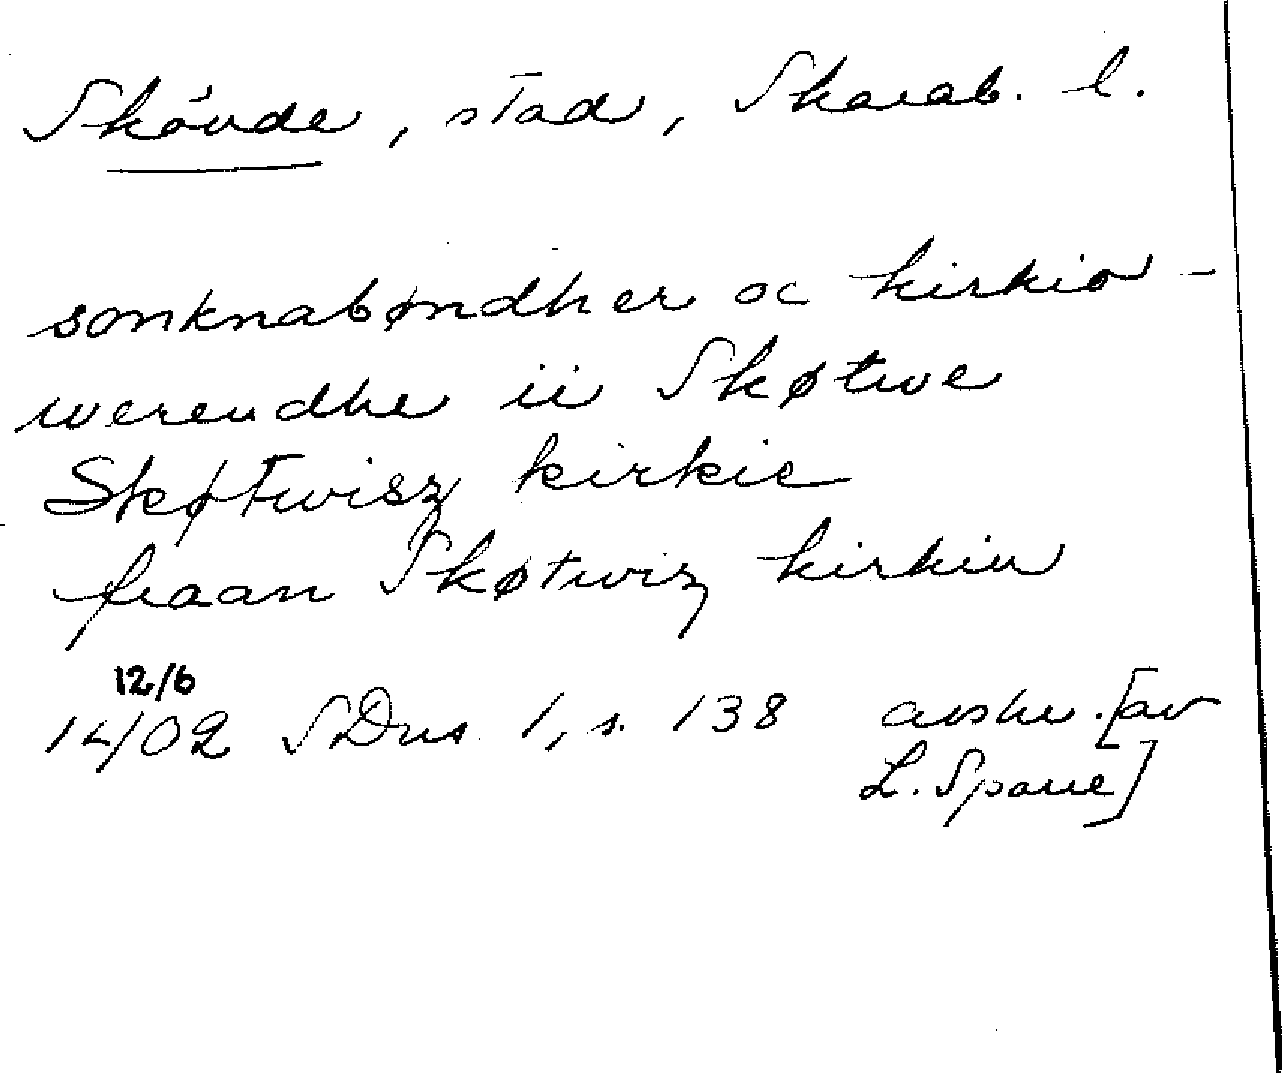 Skövde, stad, Skarab. l.
sonknabøndher oc kirkio-
werendhe ii Skøtwe
Skøtwisz kirkie
fraan Skøtwiz kirkiu
12/6
1402 SDns 1, s. 138 avskr. [av
L. Sparre]